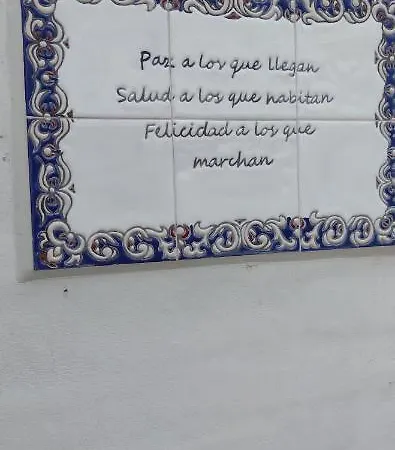 Paz a los que llegan
Salud a los que habitan
Felicidad a los que
marchan